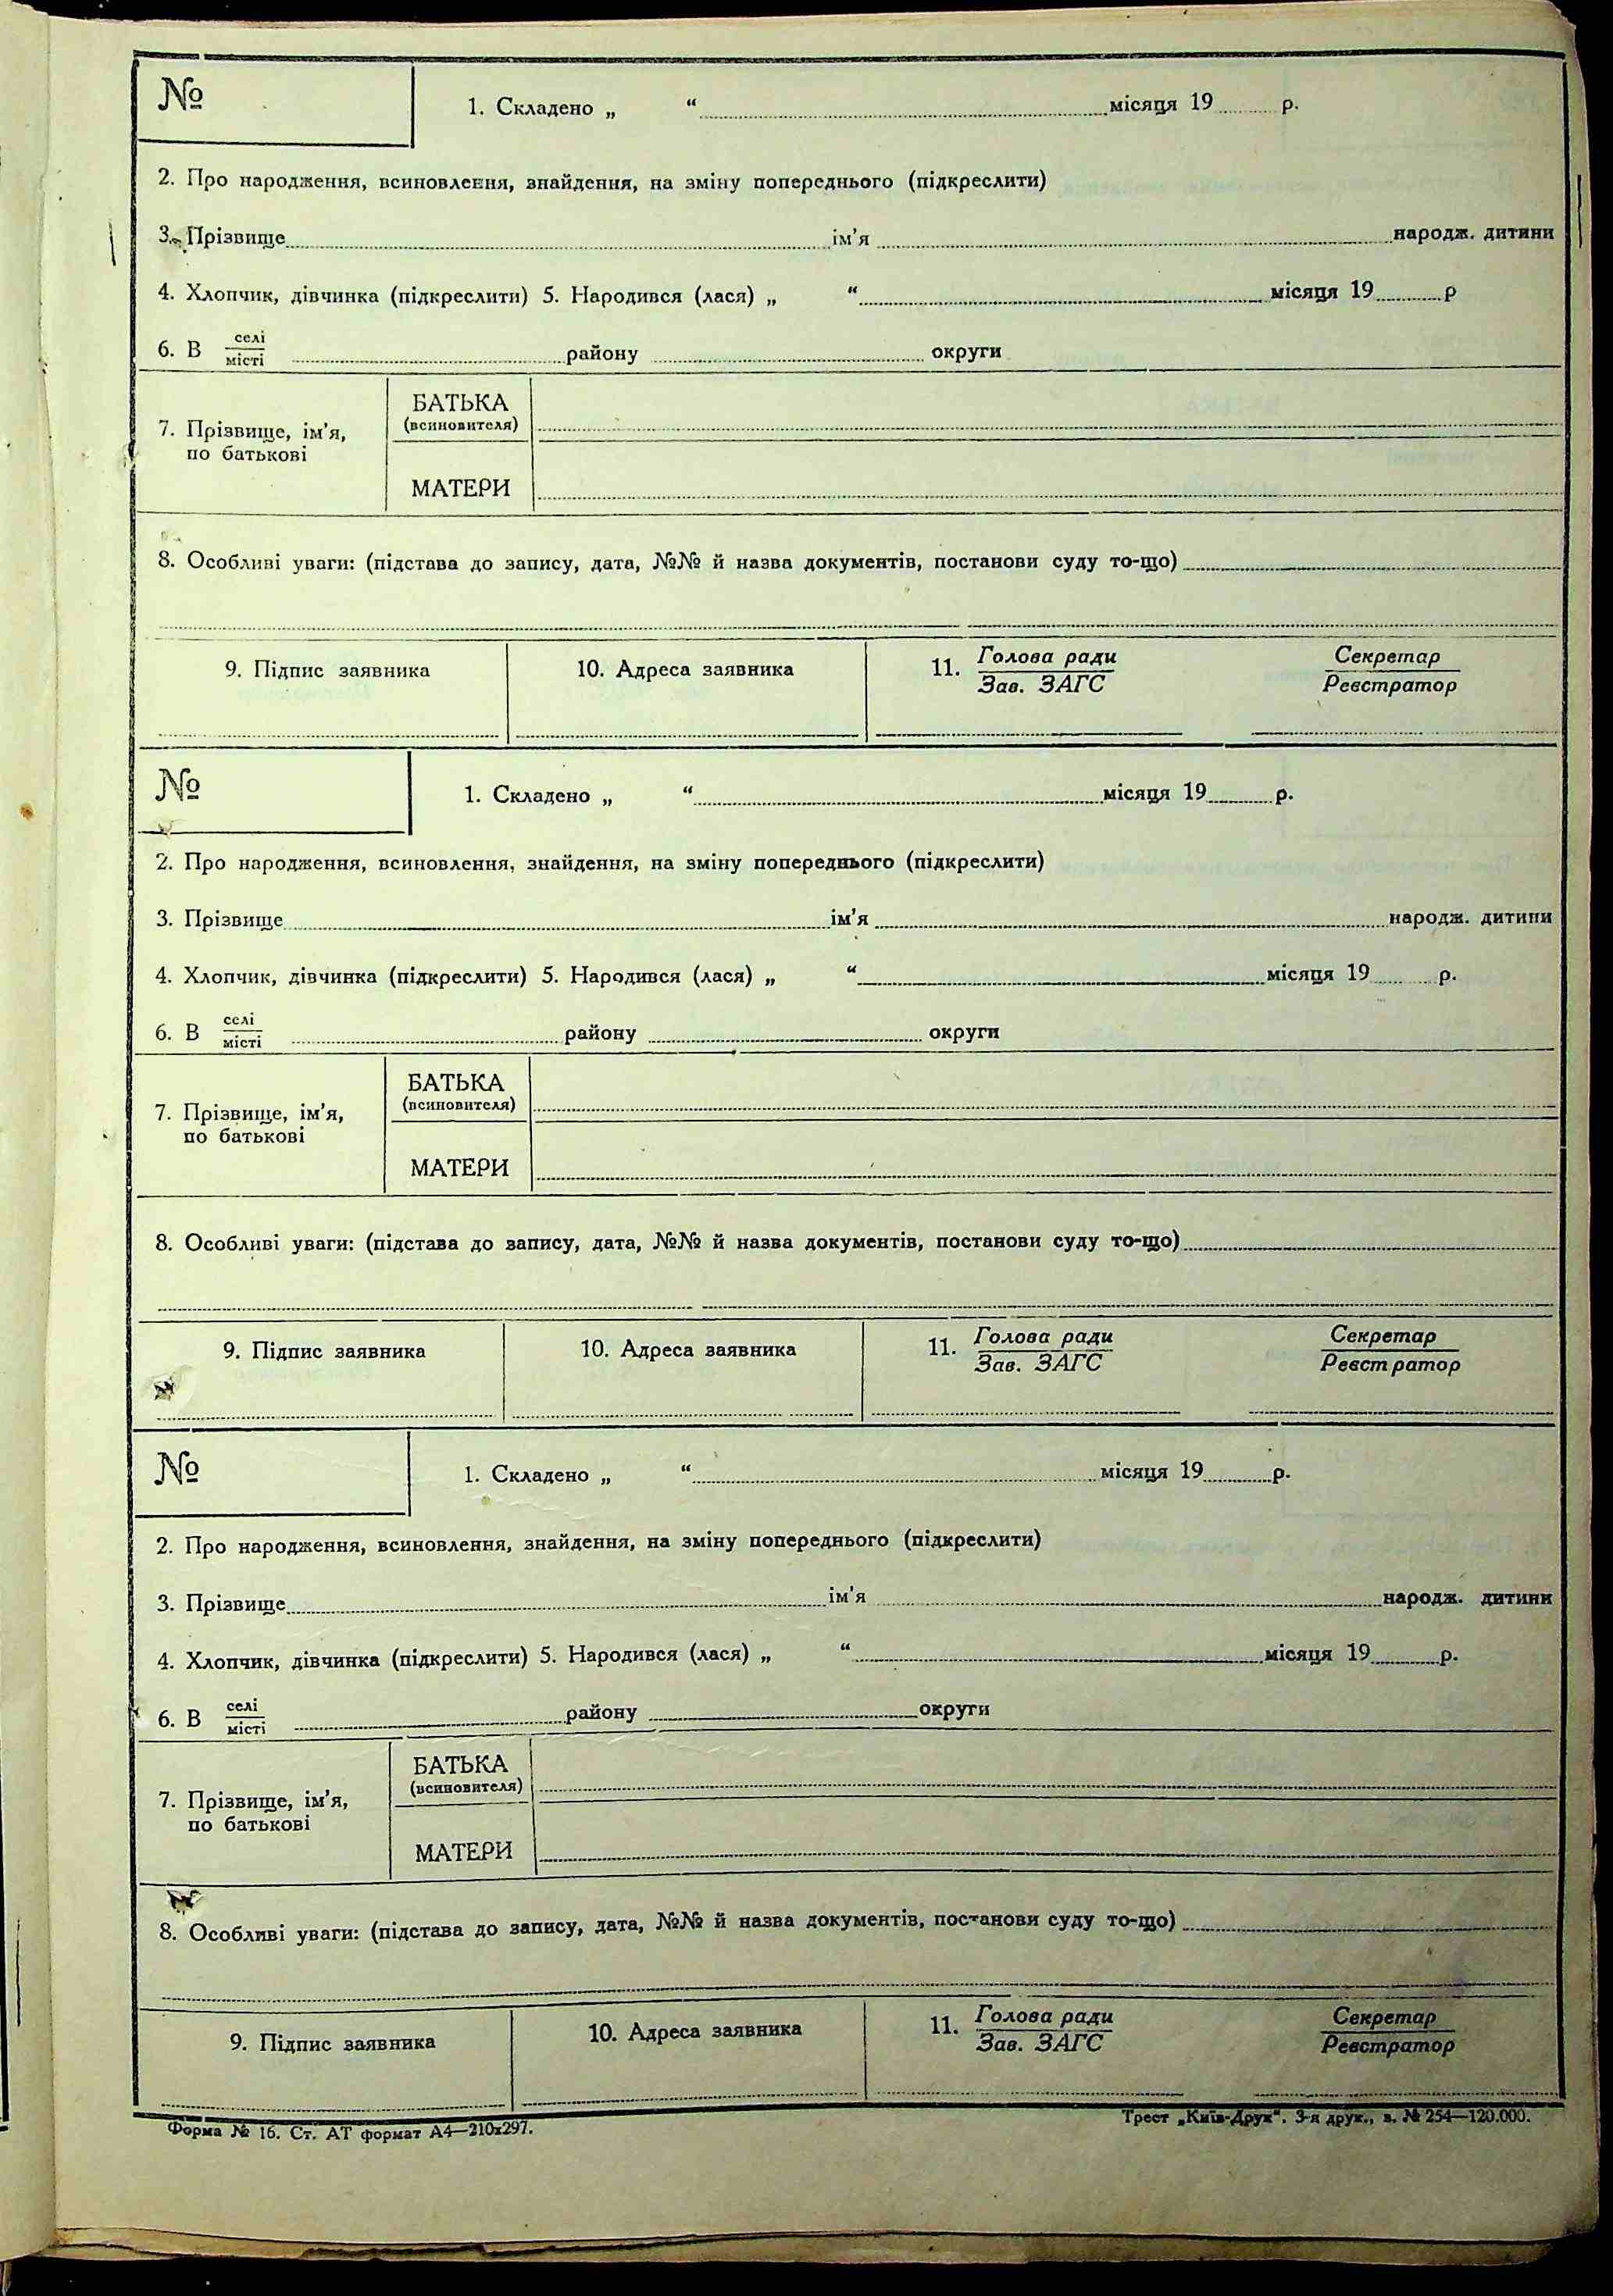 №
1. Складено „ “ місяця 19 р.
2. Про народження, всиновлення, знайдення, на зміну попереднього (підкреслити)
3. Прізвище ім’я народж. дитини
4. Хлопчик, дівчинка (підкреслити) 5. Народився (лася) „ “ місяця 19 р
6. В селі
місті району округи
7. Прізвище, ім’я,
по батькові
БАТЬКА
(всиновителя)
МАТЕРИ
8. Особливі уваги: (підстава до запису, дата, №№ й назва документів, постанови суду то-що)
9. Підпис заявника
10. Адреса заявника
11. Голова ради
Зав. ЗАГС
Секретар
Реєстратор
№
1. Складено „ “ місяця 19 р.
2. Про народження, всиновлення, знайдення, на зміну попереднього (підкреслити)
3. Прізвище ім’я народж. дитини
4. Хлопчик, дівчинка (підкреслити) 5. Народився (лася) „ “ місяця 19 р.
6. В селі
місті району округи
7. Прізвище, ім’я,
по батькові
БАТЬКА
(всиновителя)
МАТЕРИ
8. Особливі уваги: (підстава до запису, дата, №№ й назва документів, постанови суду то-що)
9. Підпис заявника
10. Адреса заявника
11. Голова ради
Зав. ЗАГС
Секретар
Реєстратор
№
1. Складено „ “ місяця 19 р.
2. Про народження, всиновлення, знайдення, на зміну попереднього (підкреслити)
3. Прізвище ім’я народж. дитини
4. Хлопчик, дівчинка (підкреслити) 5. Народився (лася) „ “ місяця 19 р.
6. В селі
місті району округи
7. Прізвище, ім’я,
по батькові
БАТЬКА
(всиновителя)
МАТЕРИ
8. Особливі уваги: (підстава до запису, дата, №№ й назва документів, постанови суду то-що)
9. Підпис заявника
10. Адреса заявника
11. Голова ради
Зав. ЗАГС
Секретар
Реєстратор
Форма № 16. Ст. АТ формат А4—210х297.
Трест „Київ-Друк“. 3-я друк., з. № 254—120.000.